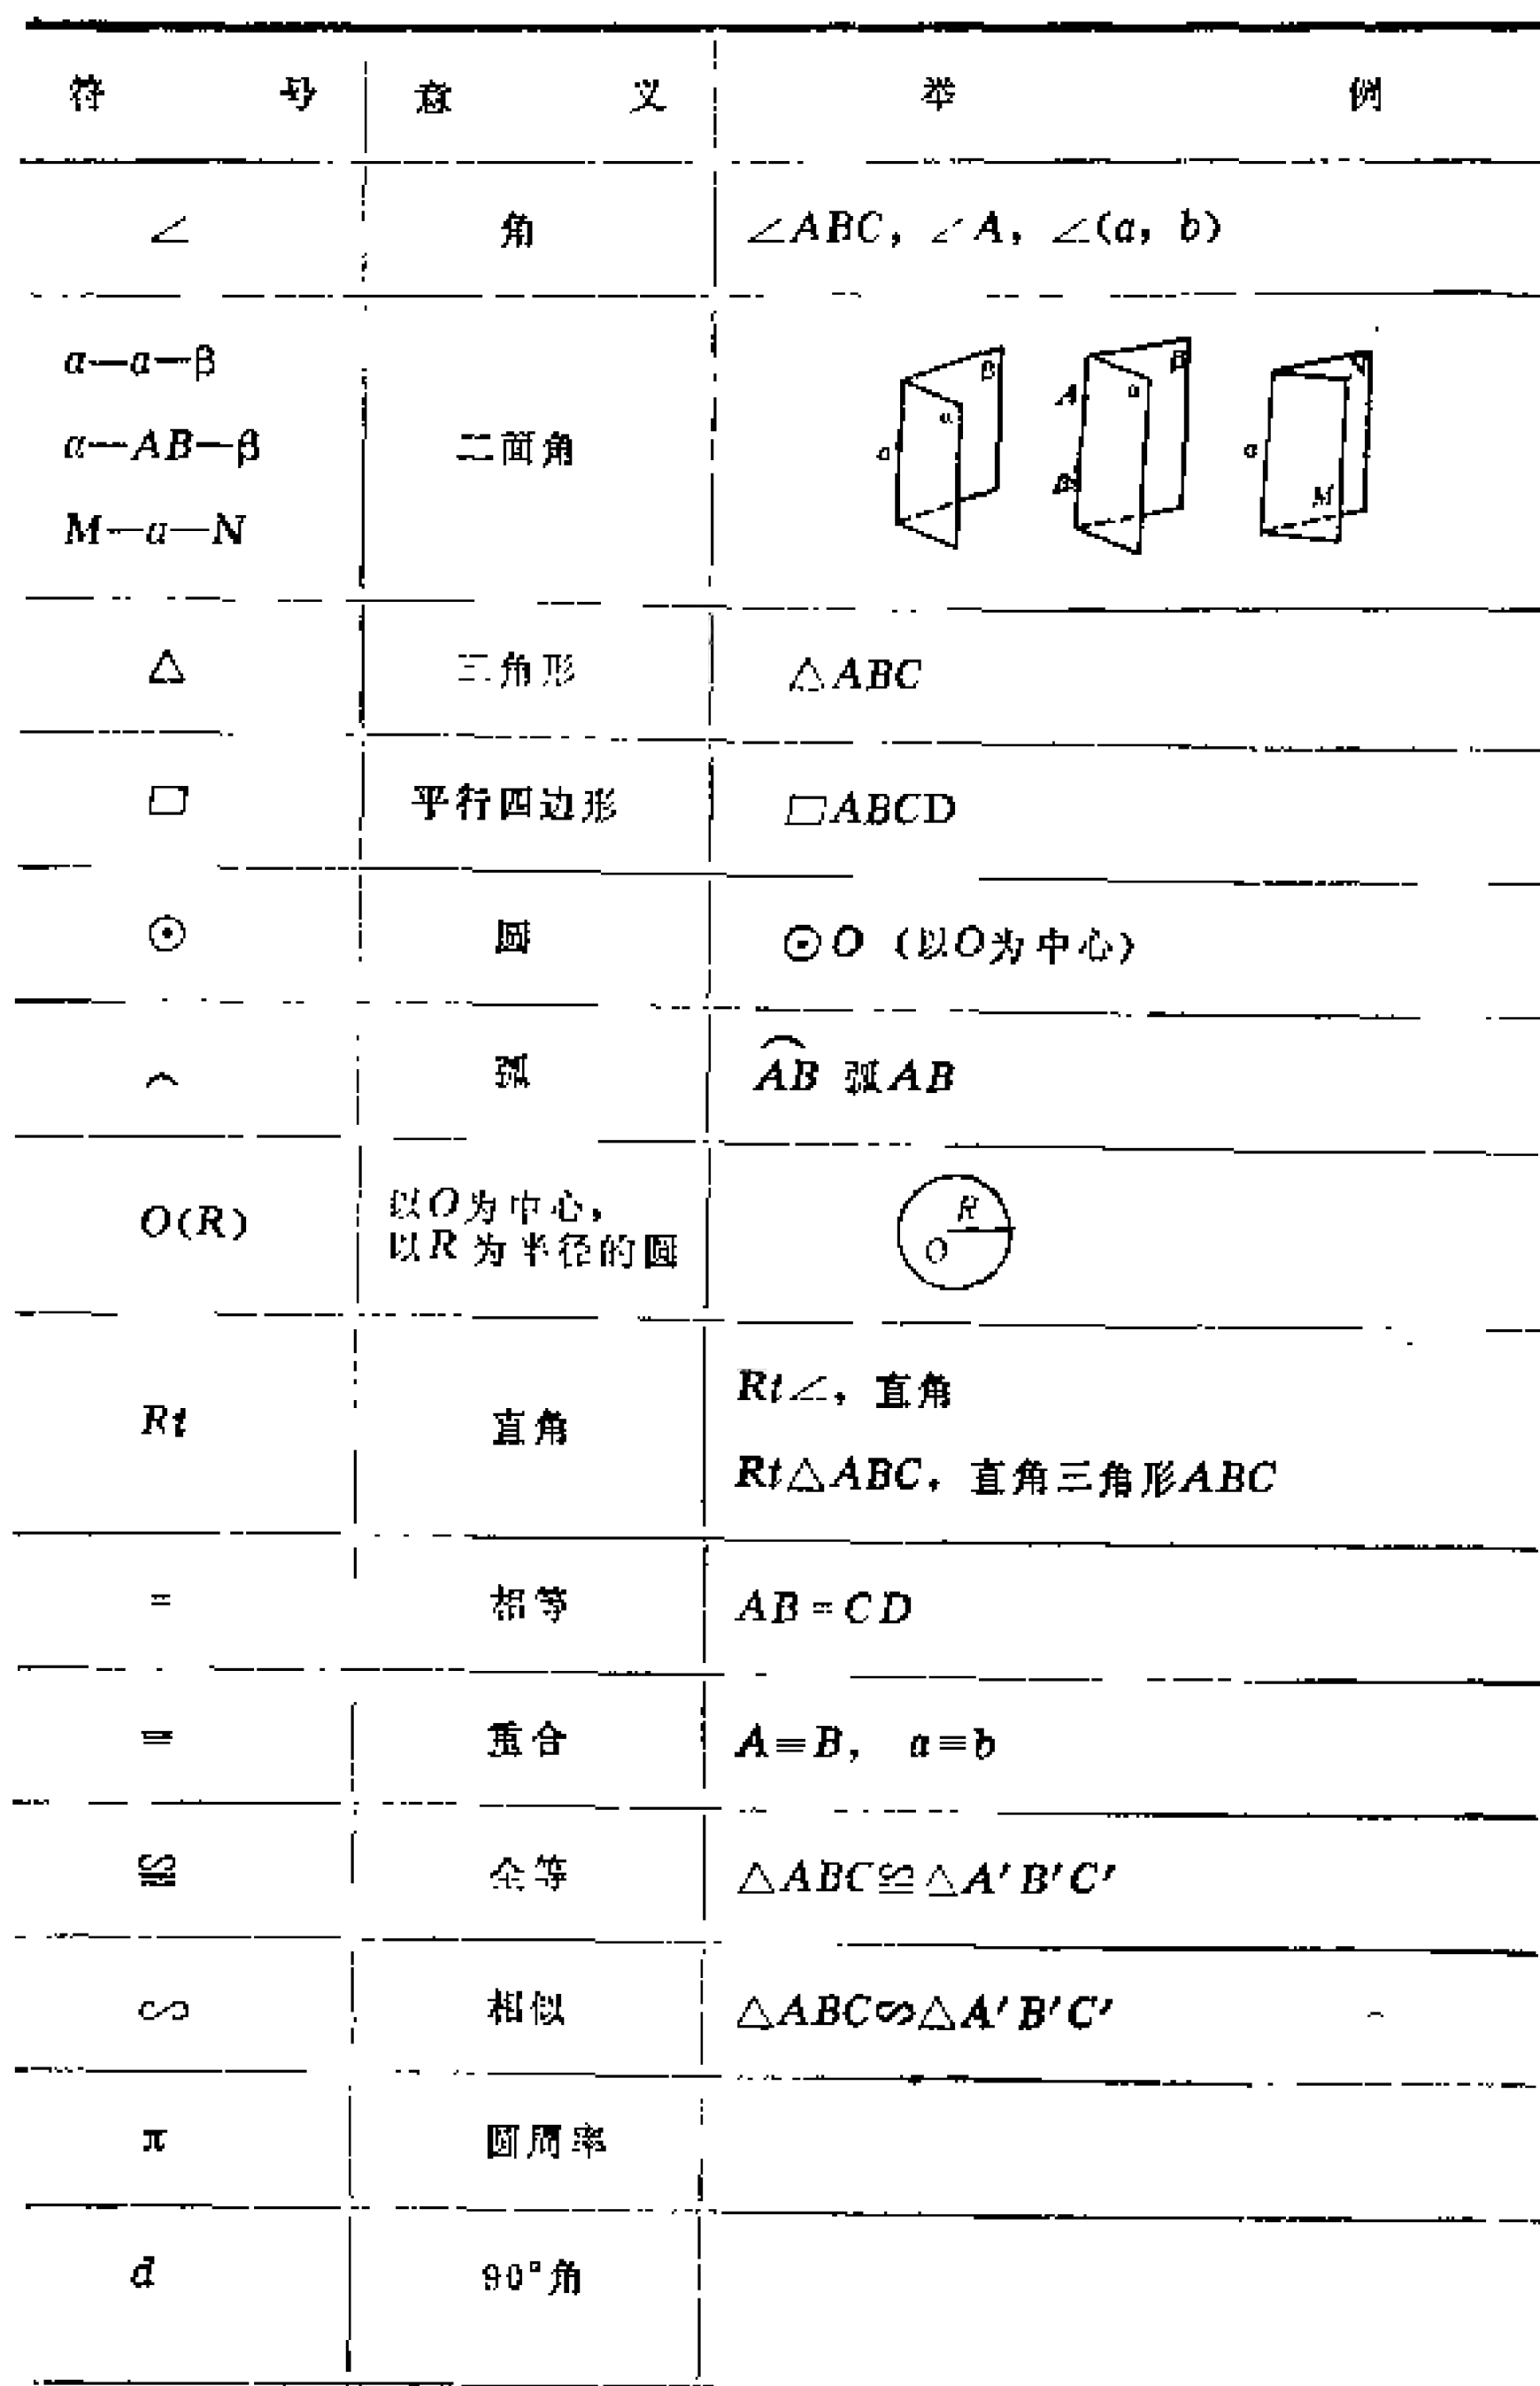 符 号 意 义 举 例
∠ 角 ∠ABC, ∠A, ∠(a, b)
α—a—β
α—AB—β 二面角
M—a—N
β α a
A B α β
a M N
△ 三角形 △ABC
▱ 平行四边形 ▱ABCD
⊙ 圆 ⊙O (以O为中心)
⌒ 弧 A͡B 弧AB
O(R) 以O为中心,
以R为半径的圆
R
O
Rt 直角 Rt∠, 直角
Rt△ABC, 直角三角形ABC
= 相等 AB=CD
≡ 重合 A≡B, a≡b
≌ 全等 △ABC≌△A′B′C′
∽ 相似 △ABC∽△A′B′C′
π 圆周率
d 90°角